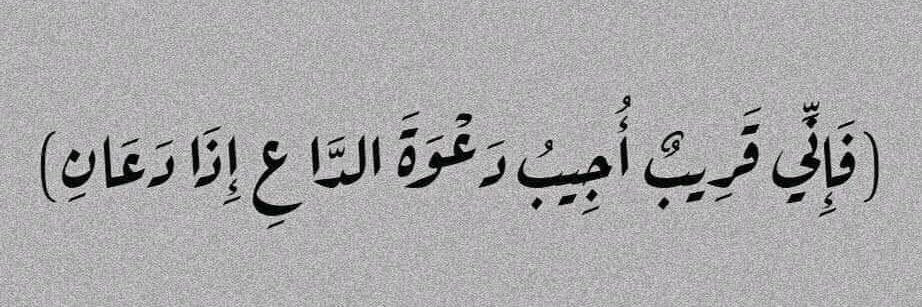 (فَإِنِّي قَرِيبٌ أُجِيبُ دَعْوَةَ الدَّاعِ إِذَا دَعَانِ)